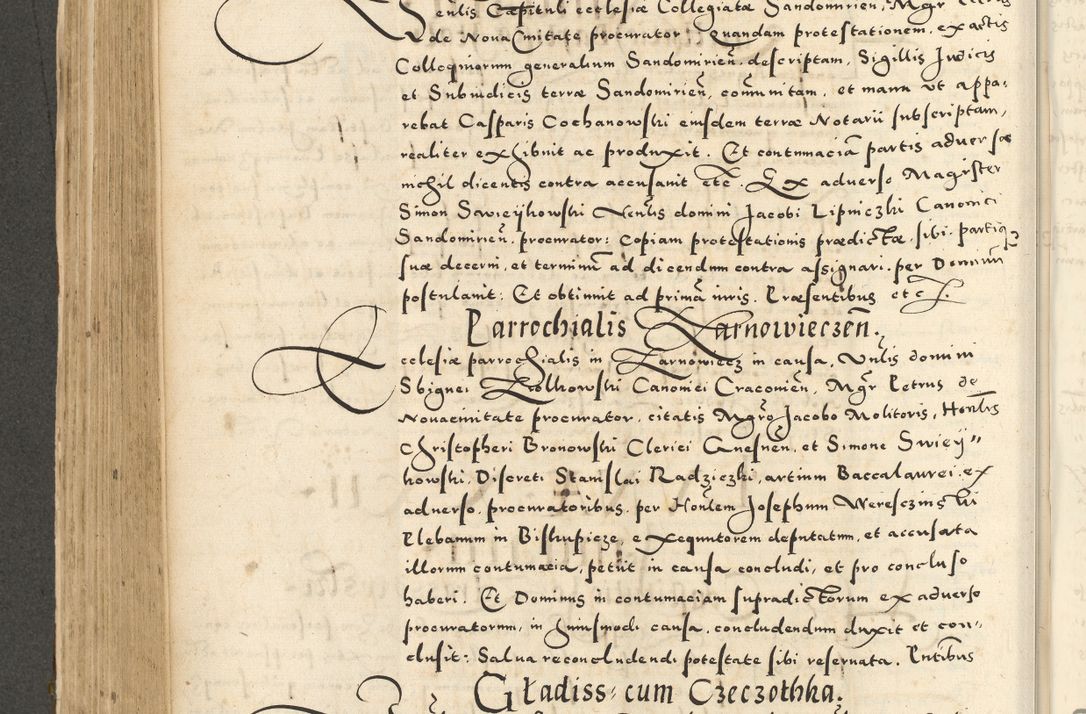 enlis Capituli ecclesiæ Collegiatæ Sandomirien, Mgr Petrus
de Noua Ciuitate procurator: Quandam protestationem, ex actis
Colloquiorum generalium Sandomirien, descriptam, Sigillis Iudicis
et Subiudicis terræ Sandomirien, comunitam, et manu ut appa,
rebat Casparis Cochanowski eiusdem terræ Notarii subscriptam,
realiter exhibuit ac produxit. Et contumaciã partis aduersæ
nichil dicentis contra accusauit etc. Ex aduerso Magister
Simon Swieykowski Venlis domini Jacobi Lipniczki Canonici
Sandomirien, procurator: Copiam protestationis prædictæ, sibi, partiq3
suæ decerni, et terminũ ad dicendum contra assignari, per Dominũ
postulauit: Et obtinuit ad primã iuris. Præsentibus etc.
Parrochialis Zarnowieczeñ.
Ecclesiæ parrochialis in Zarnowiecz in causa, Vnlis domini
Sbignei Zolkowski Canonici Cracouien, Mgr Petrus de
Nouaciuitate procurator, citatis Mgro Jacobo Molitoris, Honlis
Christopheri Bronowski Clerici Gnesnen, et Simone Swiey"
kowski, Discreti Stanislai Radziczki, artium Baccalaurei, ex
aduerso, procuratoribus, per Honlem Josephum Weresczinski
Plebanum in Biskupicze, executorem deputatum, et accusata
illorum contumacia, petiit in causa concludi, et pro concluso
haberi: Et Dominus in contumaciam supradictorum ex aduerso
procuratorum, in huiusmodi causa, concludendum duxit et con"
clusit: Salua reconcludendi potestate sibi reseruata. Pntibus
Gładiss: cum Czeczothka.